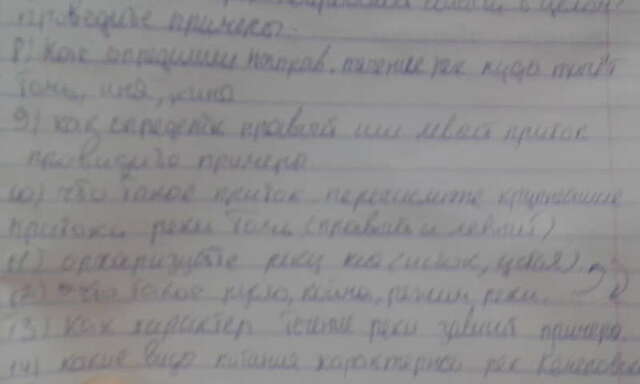 приведите примеры.
8) как определили направ. течение рек куда течёт
Томь, иня, кия
9) как определить правый или левый приток
приведите примера
10) что такое приток перечислите крупнейшие
притоки реки Томи (правый и левый)
11) охаризуйте реку кия (исток, устья).
12) что такое русло, пойма, режим реки.
13) как характер течение реки примера.
14) какие вида питания характерной рек Кемеровск